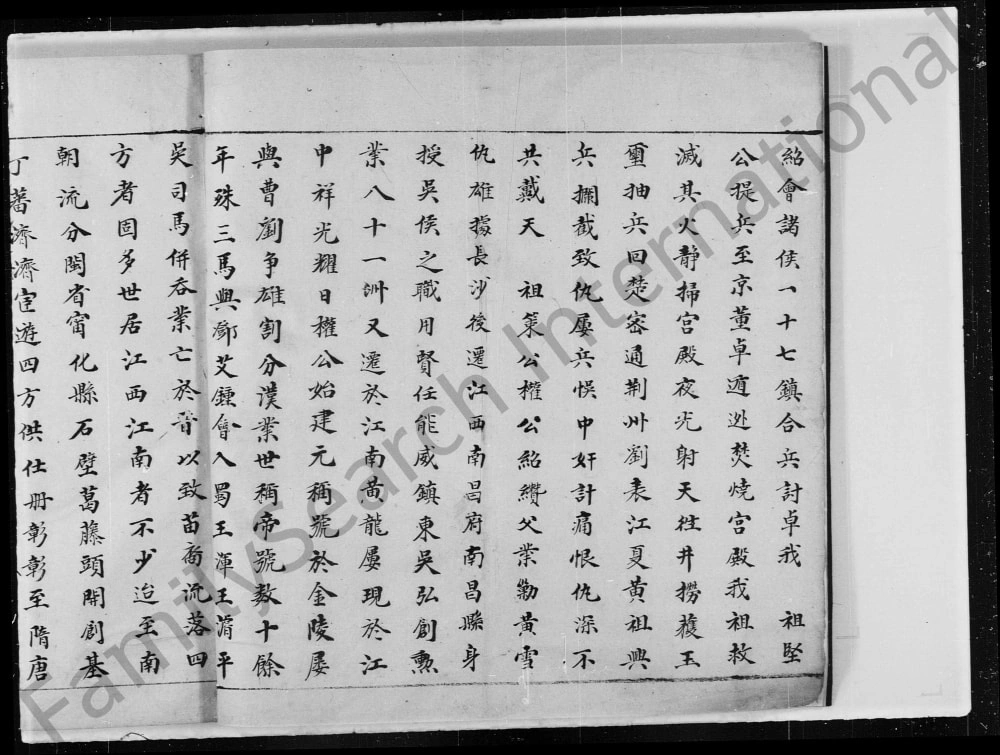 紹會諸侯一十七鎮合兵討卓我 祖堅
公提兵至京董卓遁迯焚燒宫殿我祖救
滅其火静掃宫殿夜光射天徃井撈䕶玉
璽抽兵回楚密通荆州劉表江夏黄祖興
兵攔截致仇屡兵悮中奸計痛恨仇深不
共戴天 祖策公權公紹纘父業勦黄雪
仇雄據長沙後遷江西南昌府南昌縣身
授吳侯之職用賢任能威鎮東吳弘創勲
業八十一州又遷於江南黄龍屡現於江
中祥光耀日權公始建元稱號於金陵屡
與曹劉争雄割分漢業世稱帝號数十餘
年殊三馬興鄧艾鍾會入蜀王渾王濬平
吳司馬併吞業亡於晋以致苗裔流落四
方者固多世居江西江南者不少迨至南
朝流分閩省甯化縣石壁葛藤頭開創基
丁蕃濟濟宦遊四方供仕册彰彰至隋唐
FamilySearch International